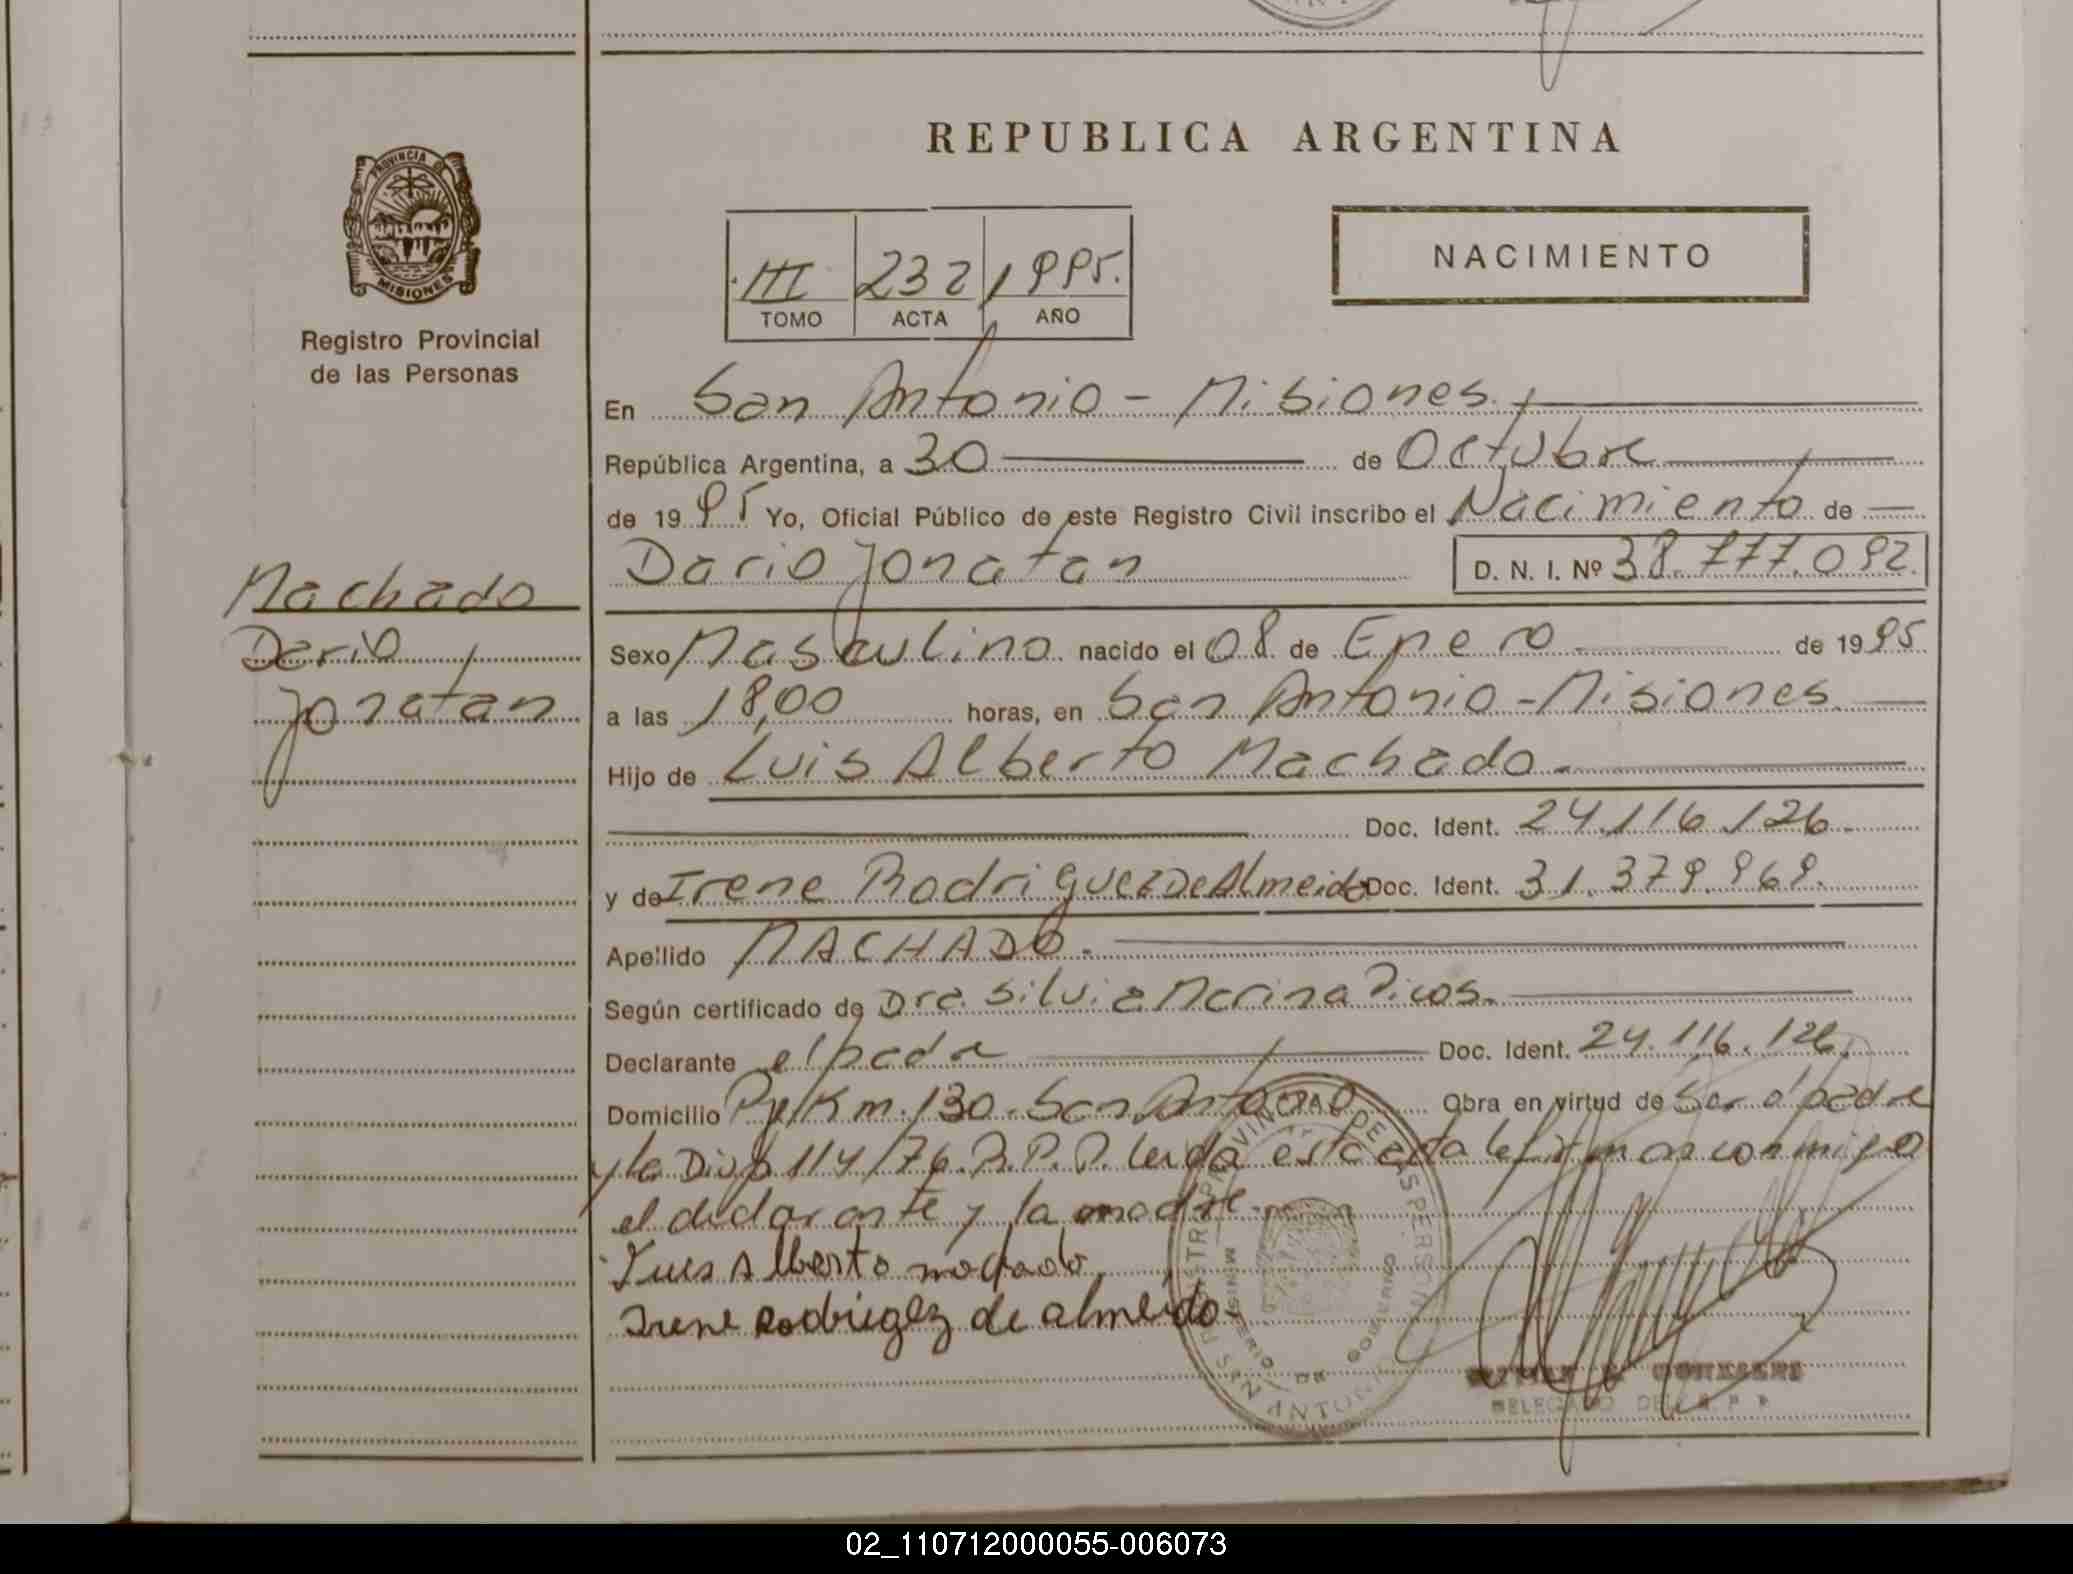 PROVINCIA DE
MISIONES
Registro Provincial
de las Personas
Machado
Dario
Jonatan
REPUBLICA ARGENTINA
NACIMIENTO
III 232 1995.
TOMO ACTA AÑO
En San Antonio - Misiones.
República Argentina, a 30 de Octubre
de 1995 Yo, Oficial Público de este Registro Civil inscribo el Nacimiento de
Dario Jonatan D. N. I. Nº 38.777.092.
Sexo Masculino nacido el 08 de Enero de 1995
a las 18,00 horas, en San Antonio - Misiones
Hijo de Luis Alberto Machado.
Doc. Ident. 24.116.126.
y de Irene Rodriguez De Almeida Doc. Ident. 31.379.969.
Apellido MACHADO.
Según certificado de Dra. Silvia Marina Picos.
Declarante el padre Doc. Ident. 24.116.126.
Domicilio Pje Km. 130 - San Antonio Obra en virtud de Ser el padre
y la Disp 114/76. R.P.P. leida esta acta la firman conmigo
el declarante y la madre.
Luis Alberto machado
Irene Rodriegez de almeida
MINISTERIO DE GOBIERNO
SAN ANTONIO
DELEGADO DEL R P P
02_110712000055-006073